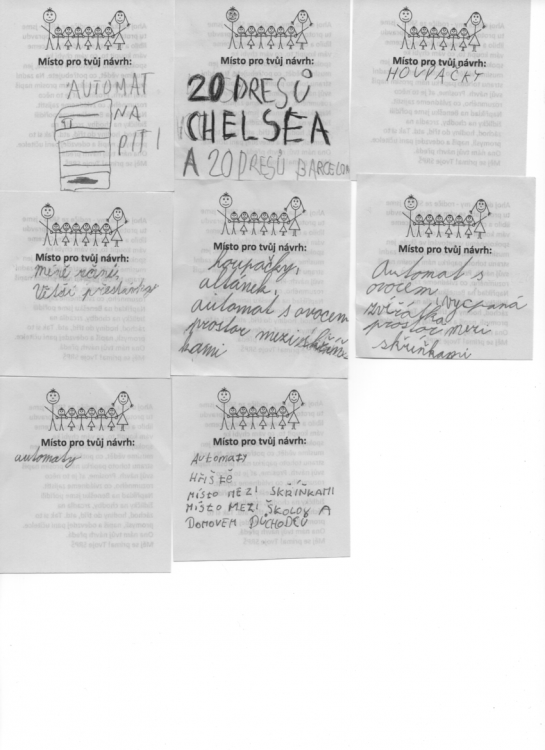 Místo pro tvůj návrh:
AUTOMAT
NA
PITÍ
Místo pro tvůj návrh:
20 DRESŮ
CHELSEA
A 20 DRESŮ BARCELON
Místo pro tvůj návrh:
HOUPAČKY
Místo pro tvůj návrh:
Méně učení,
Větší přestávky
Místo pro tvůj návrh:
houpačky,
altánek,
automat s ovocem
prostor mezi skřín
kami
Místo pro tvůj návrh:
Automat s
ovocem
zvířátka vycpaná
prostor mezi
skříňkami
Místo pro tvůj návrh:
automaty
Místo pro tvůj návrh:
AUTOMATY
HŘIŠTĚ
MÍSTO MEZI SKŘÍŇKAMI
MÍSTO MEZI ŠKOLOU A
DOMOVEM DŮCHODCŮ